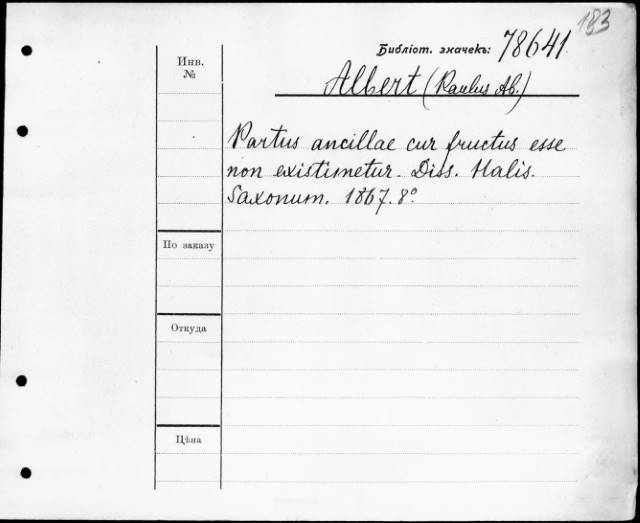 183
Библіот. значекъ: 78641.
Инв. №
Albert (Paulus Ab.)
Partus ancillae cur fructus esse
non existimetur. Diss. Halis.
Saxonum. 1867. 8º.
По заказу
Откуда
Цѣна